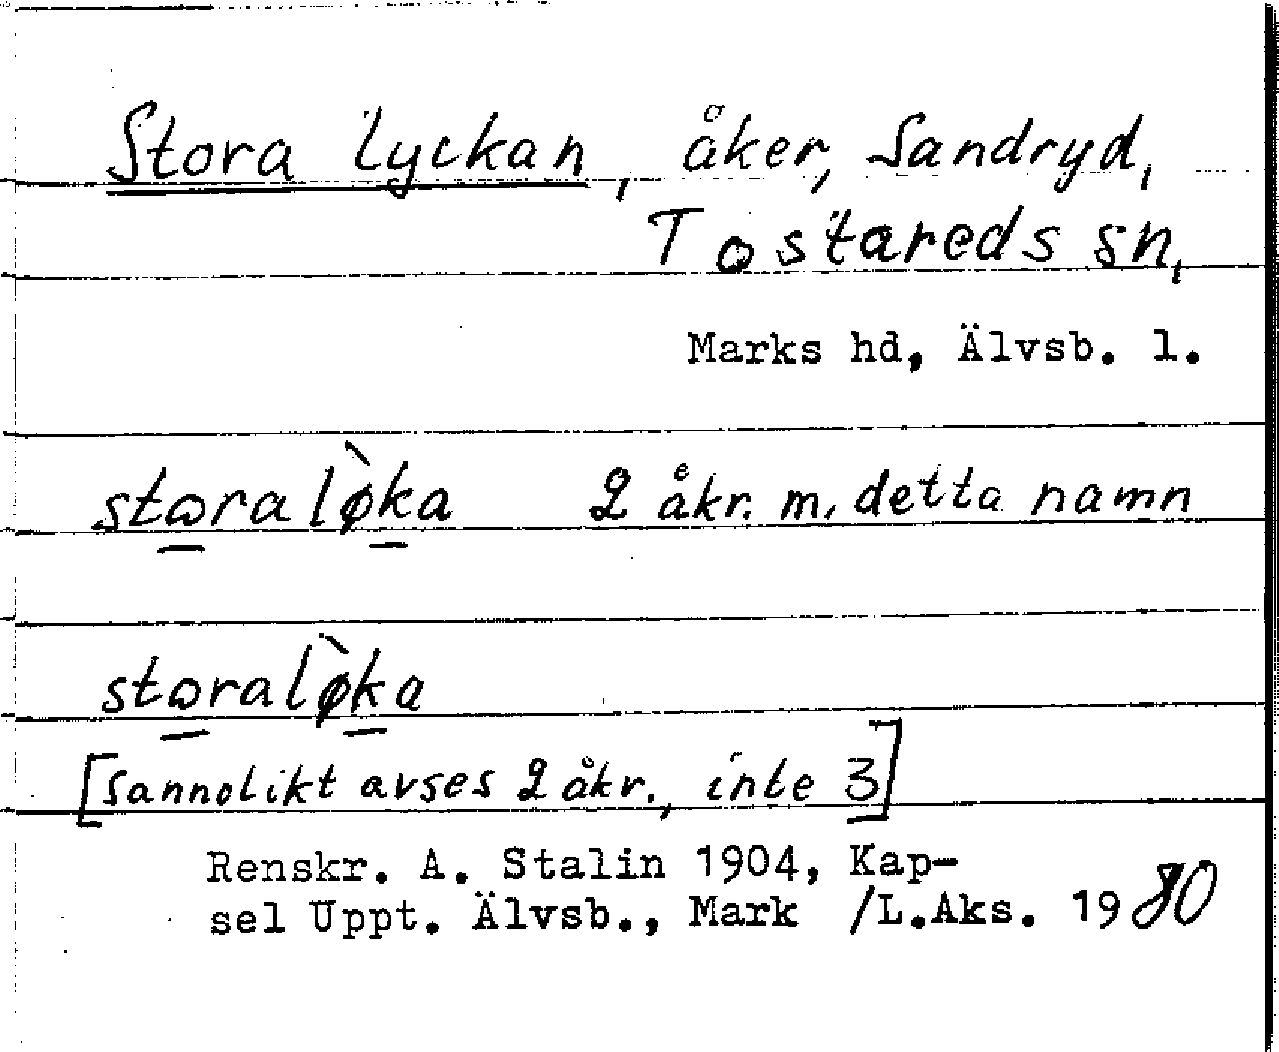 Stora Lyckan, åker, Sandryd,
Tostareds sn,
Marks hd, Älvsb. l.
storalø̀ka 2 åkr. m. detta namn
storalø̀ka
[Sannolikt avses 2 åkr., inte 3]
Renskr. A. Stalin 1904, Kap-
sel Uppt. Älvsb., Mark /L.Aks. 1980